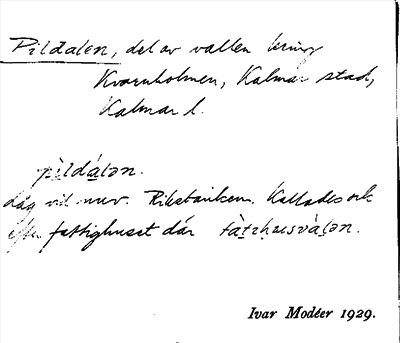 Pildalen, del av vallen kring
Kvarnholmen, Kalmar stad,
Kalmar l.
pìldáḷən.
låg vid nuv. Riksbanken. Kallades ock
efter fattighuset där fàt̲ɪhusvàḷən.
Ivar Modéer 1929.